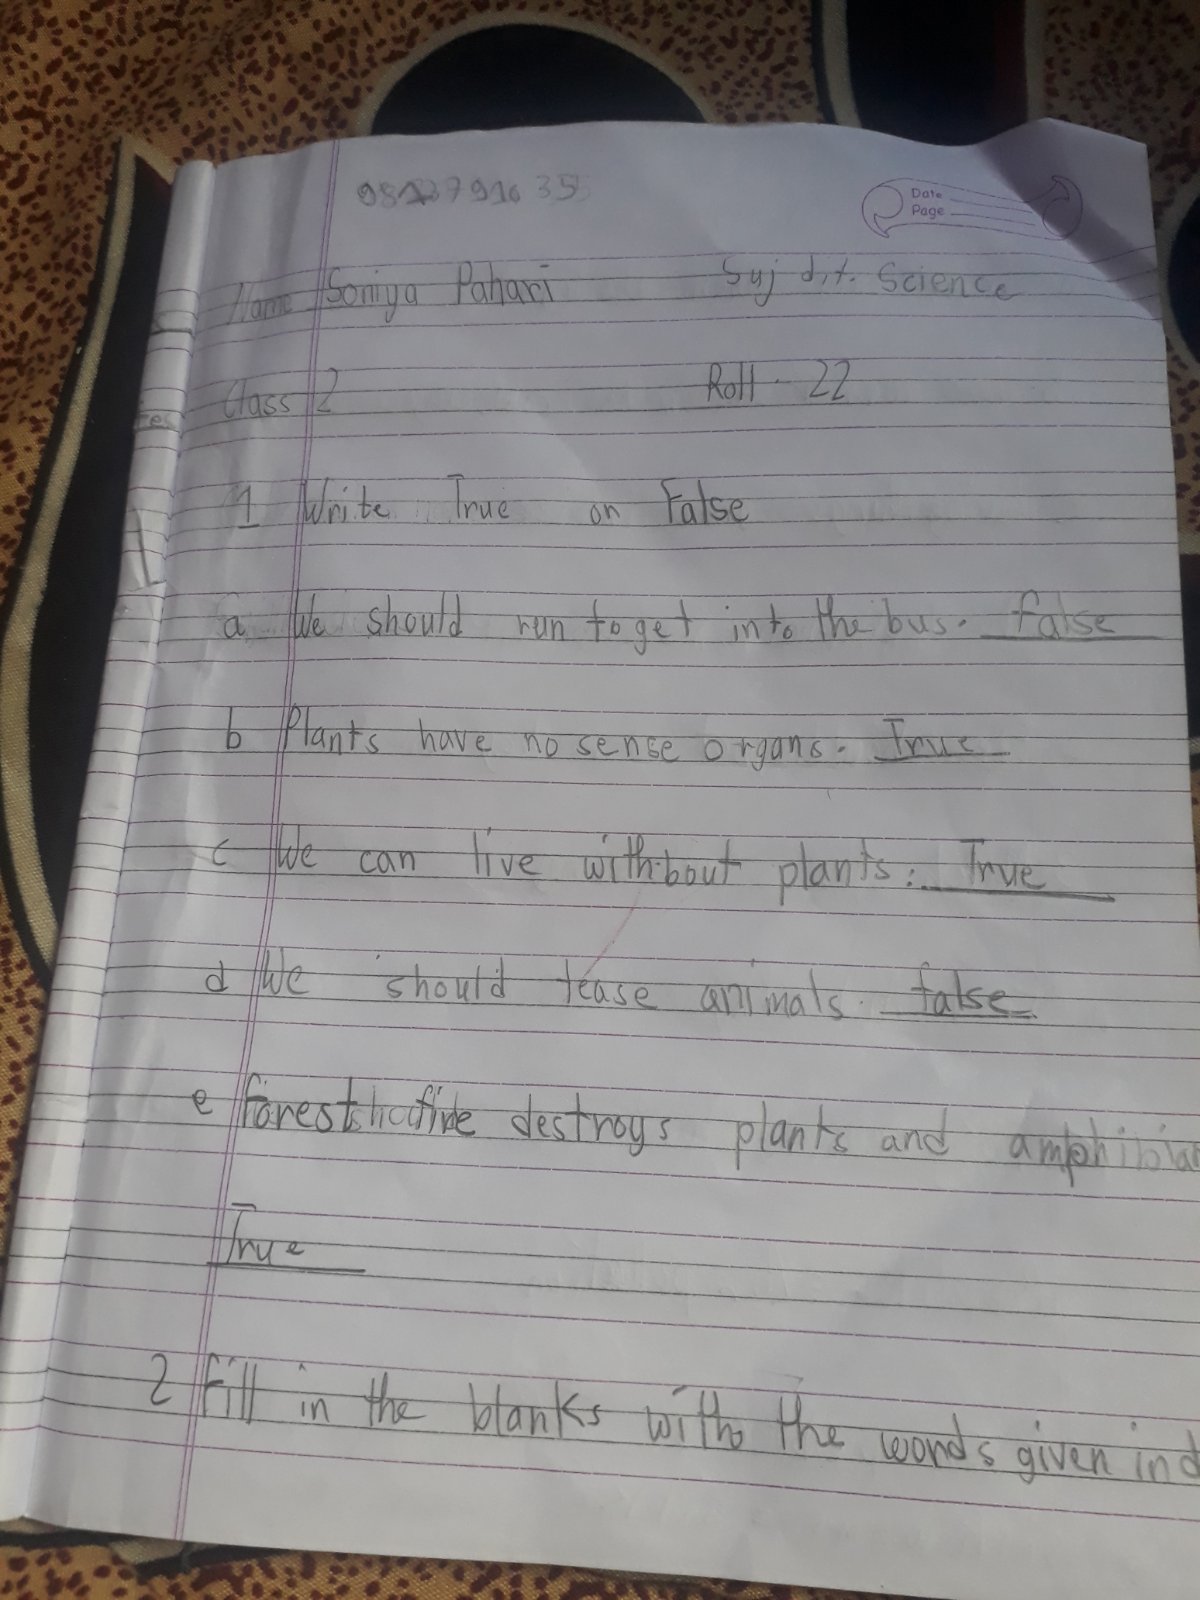 Date
Page
Name Soniya Pahari Science
Class 2 Roll - 22
1 Write True or False
a We should run to get into the bus. false
b Plants have no sense organs. True
c We can live without plants. True
d We should tease animals. false
e destroys plants and
True
2 Fill in the blanks with the words given in